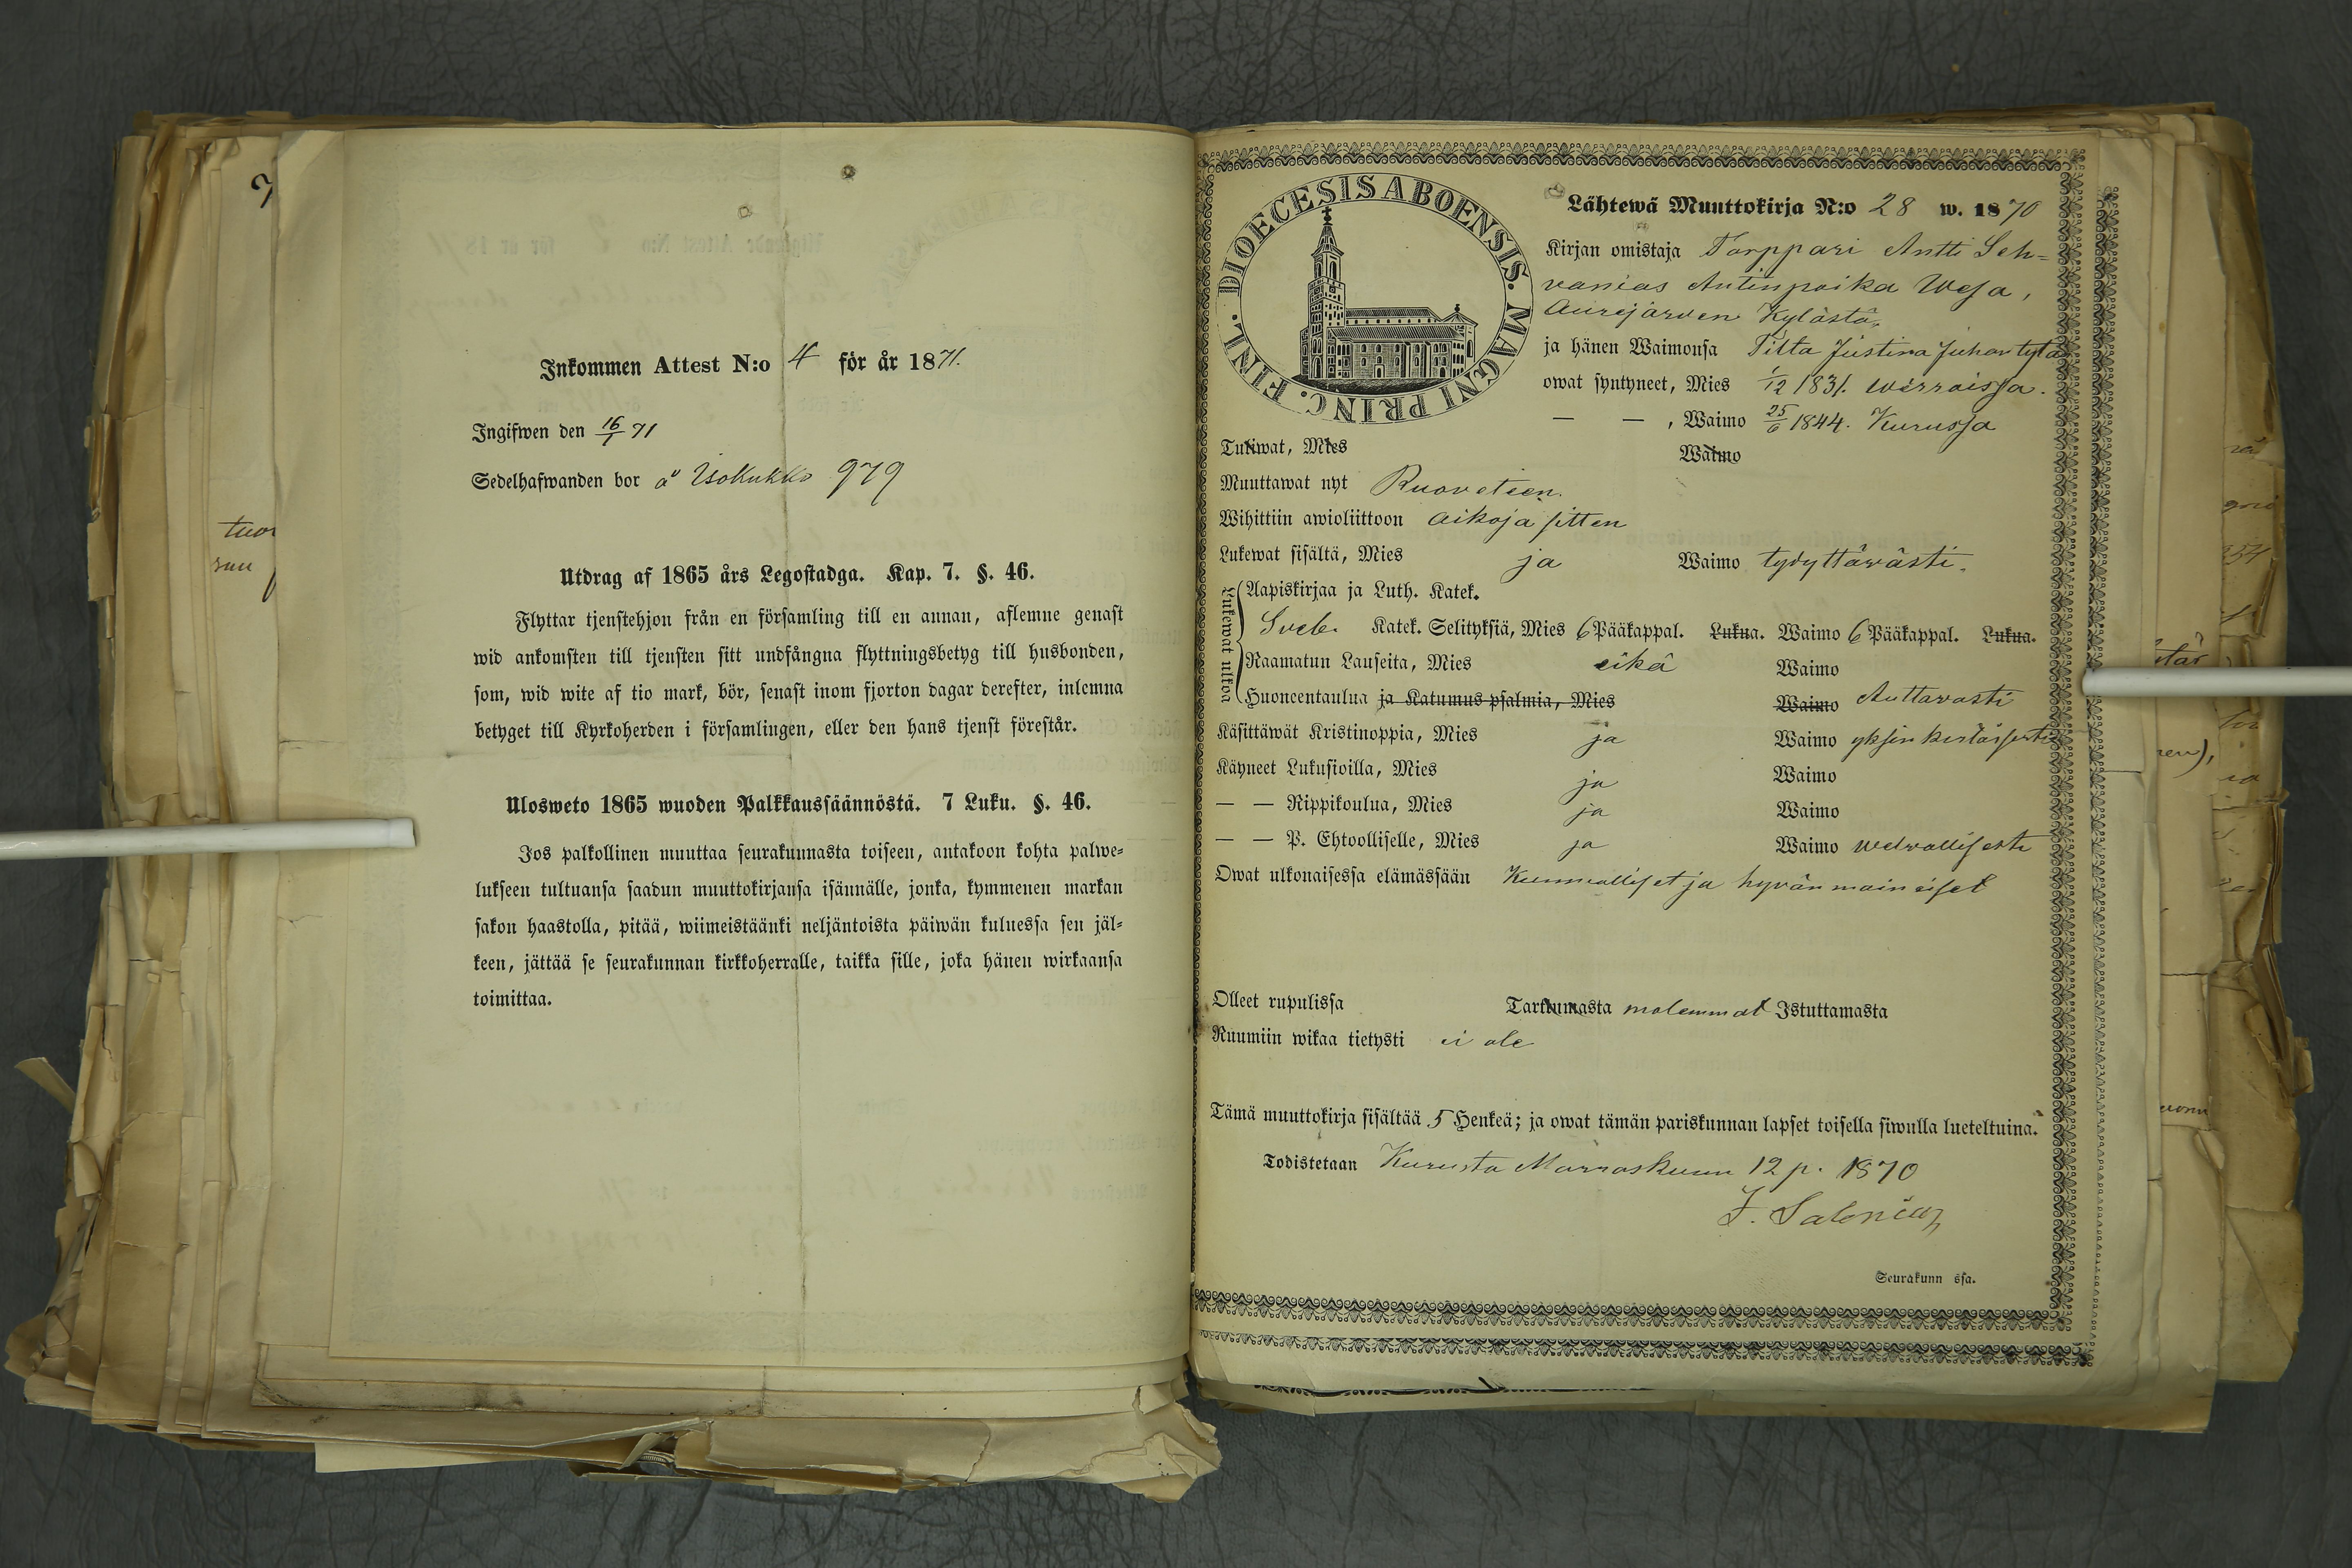 Inkommen Attest N:o 4 för år 1871.
Ingifwen den 16/1 71
Sedelhafwanden bor å Isokukko 979
Utdrag af 1865 års Legostadga. Kap. 7. §. 46.
Flyttar tjenstehjon från en församling till en annan, aflemne genast
wid ankomsten till tjensten sitt undfångna flyttningsbetyg till husbonden,
som, wid wite af tio mark, bör, senast inom fjorton dagar derefter, inlemna
betyget till Kyrkoherden i församlingen, eller den hans tjenst förestår.
Ulosweto 1865 wuoden Palkkaussäännöstä. 7 Luku. §. 46.
Jos palkollinen muuttaa seurakunnasta toiseen, antakoon kohta palwe-
lukseen tultuansa saadun muuttokirjansa isännälle, jonka, kymmenen markan
sakon haastolla, pitää, wiimeistäänki neljäntoista päiwän kuluessa sen jäl-
keen, jättää se seurakunnan kirkkoherralle, taikka sille, joka hänen wirkaansa
toimittaa.
DIOECESIS ABOENSIS. MAGNI PRINC. FINL.
Lähtewä Muuttokirja N:o 28 w. 1870
Kirjan omistaja Torppari Antti Seh=
vanias Antinpoika Wesa,
Aurejärven Kylästä,
ja hänen Waimonsa Tilta Justina Juhantytä
owat syntyneet, Mies 1/12 1831. Wirroissa.
— — , Waimo 25/6 1844. Kurussa
Tuliwat, Mies Waimo
Muuttawat nyt Ruoveteen.
Wihittiin awioliittoon aikoja sitten
Lukewat sisältä, Mies ja Waimo tydyttäwästi.
Lukewat ulkoa
Aapiskirjaa ja Luth. Katek.
Sveb. Katek. Selityksiä, Mies 6 Pääkappal. Lukua. Waimo 6 Pääkappal. Lukua.
Raamatun Lauseita, Mies eikä Waimo
Huoneentaulua ja Katumus psalmia, Mies Waimo Auttavasti
Käsittäwät Kristinoppia, Mies ja Waimo yksinkertaisesti
Käyneet Lukusioilla, Mies ja Waimo
— — Rippikoulua, Mies ja Waimo
— — P. Ehtoolliselle, Mies ja Waimo welvollisesti
Owat ulkonaisessa elämässään Kunnialliset ja hyvän maineiset
Olleet rupulissa Tarttumasta molemmat Istuttamasta
Ruumiin wikaa tietysti ei ole
Tämä muuttokirja sisältää 5 Henkeä; ja owat tämän pariskunnan lapset toisella siwulla lueteltuina.
Todistetaan Kurusta Marraskuun 12 p. 1870
F. Salonius
Seurakunn ssa.